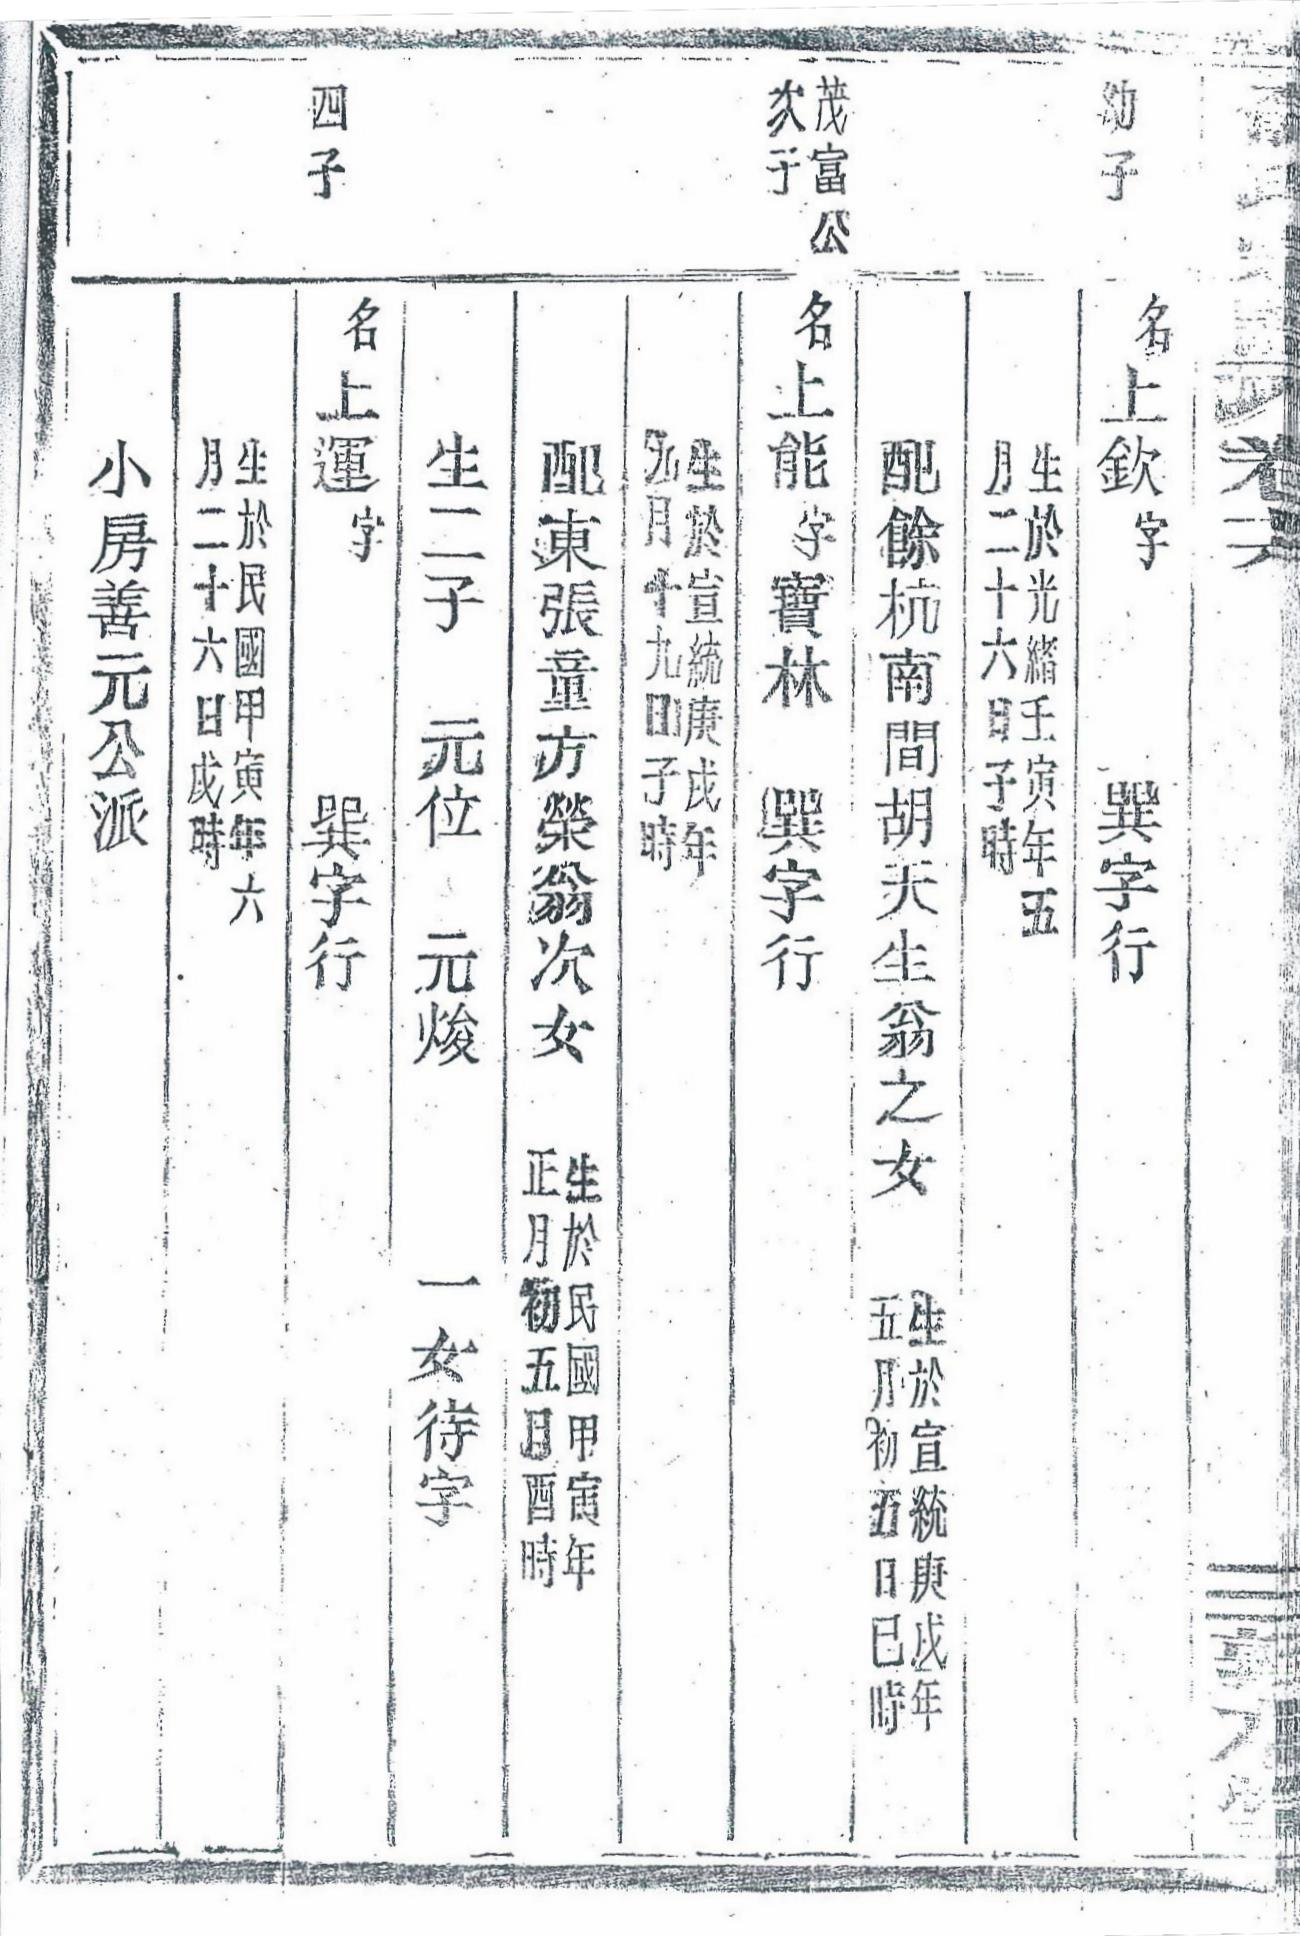 卷六
幼子
名上欽字 巽字行
生於光緒壬寅年五
月二十六日子時
配餘杭南間胡天生翁之女
生於宣統庚戌年
五月初五日巳時
茂富公
次子
名上能字寶林 巽字行
生於宣統庚戌年
九月十九日子時
配東張童方榮翁次女
生於民國甲寅年
正月初五日酉時
生二子 元位 元焌 一女待字
四子
名上運字 巽字行
生於民國甲寅年六
月二十六日戌時
小房善元公派